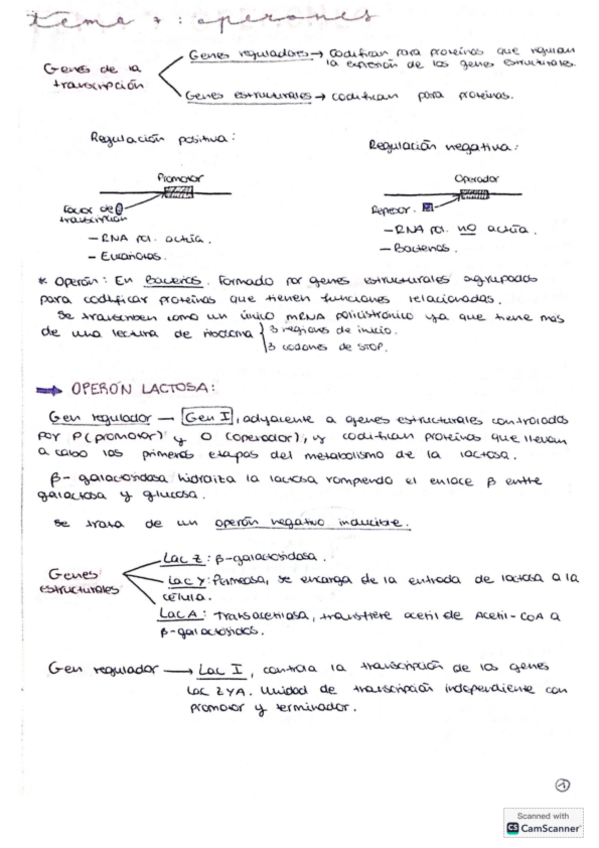 tema 7 : operones
Genes de la transcripción
Genes reguladores → codifican para proteínas que regulan
la expresión de los genes estructurales.
Genes estructurales → codifican para proteínas.
Regulación positiva:
Regulación negativa:
Promotor
Operador
Factor de
transcripción
Represor.
- RNA pol. actúa.
- Eucariotas.
- RNA pol. no actúa.
- Bacterias.
* Operón: En Bacterias. Formado por genes estructurales agrupados
para codificar proteínas que tienen funciones relacionadas.
Se transcriben como un único mRNA policistrónico ya que tiene más
de una lectura de ribosoma
3 regiones de inicio.
3 codones de STOP.
OPERÓN LACTOSA:
Gen regulador — Gen I, adyacente a genes estructurales controlados
por P (promotor) y O (operador), y codifican proteínas que llevan
a cabo las primeras etapas del metabolismo de la lactosa.
β-galactosidasa hidroliza la lactosa rompiendo el enlace β entre
galactosa y glucosa.
Se trata de un operón negativo inducible.
Genes
estructurales
Lac Z: β-galactosidasa.
Lac Y: Permeasa, se encarga de la entrada de lactosa a la
célula.
Lac A: Transacetilasa, transfiere acetil de Acetil-CoA a
β-galactósidos.
Gen regulador → Lac I, controla la transcripción de los genes
Lac ZYA. Unidad de transcripción independiente con
promotor y terminador.
1
Scanned with
CS CamScanner